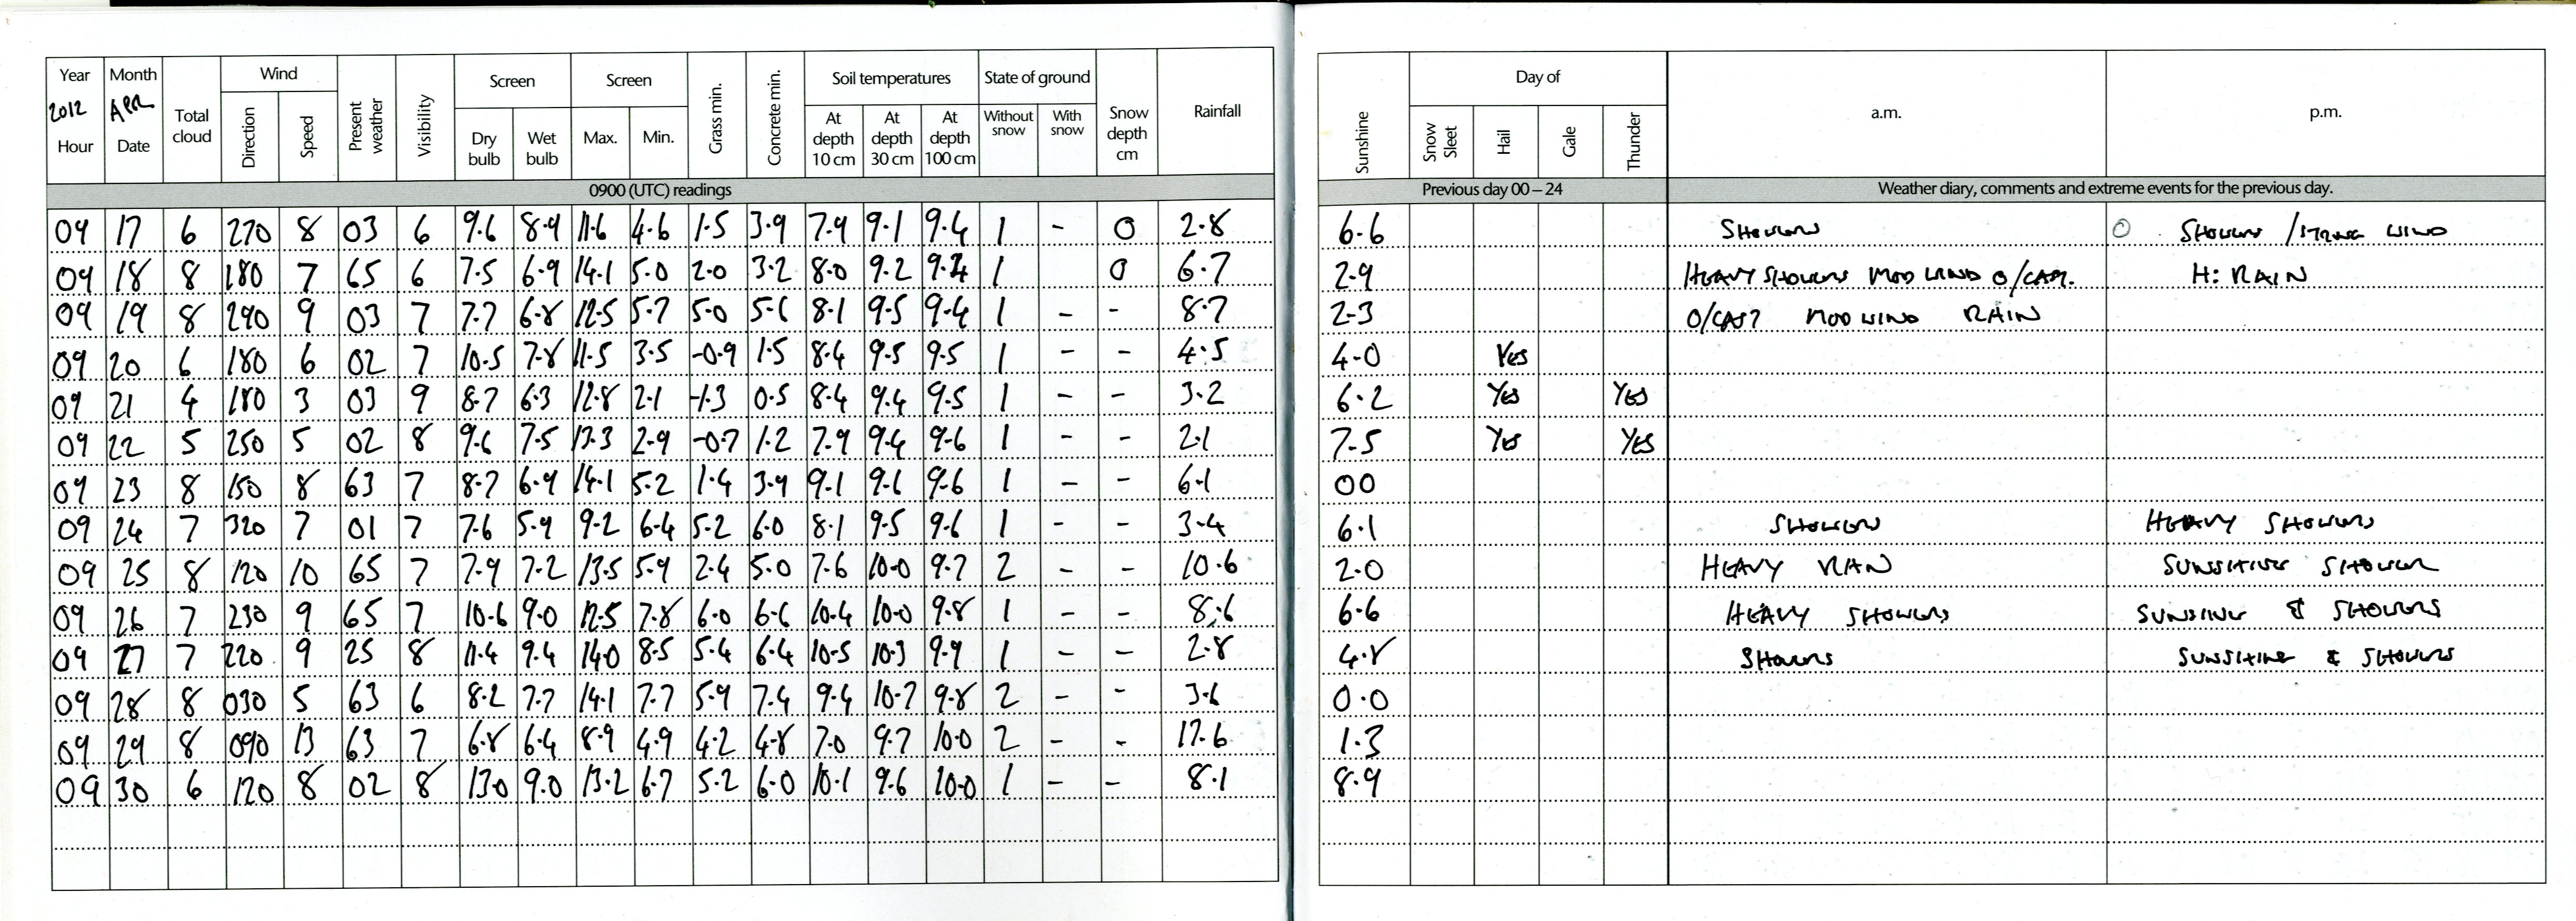 Year Month Total cloud Wind Present weather Visibility Screen Screen Grass min. Concrete min. Soil temperatures State of ground Snow depth cm Rainfall Sunshine Day of a.m. p.m.
2012 APR Direction Speed Dry bulb Wet bulb Max. Min. At depth 10 cm At depth 30 cm At depth 100 cm Without snow With snow Snow Sleet Hail Gale Thunder
Hour Date
0900 (UTC) readings Previous day 00 – 24 Weather diary, comments and extreme events for the previous day.
09 17 6 270 8 03 6 9.6 8.9 11.6 4.6 1.5 3.9 7.9 9.1 9.4 1 - 0 2.8 6.6 SHOWERS O SHOWERS / STRONG WIND
09 18 8 180 7 65 6 7.5 6.9 14.1 5.0 2.0 3.2 8.0 9.2 9.4 1 0 6.7 2.9 HEAVY SHOWERS MOD WIND O/CAST. H: RAIN
09 19 8 290 9 03 7 7.7 6.8 12.5 5.7 5.0 5.6 8.1 9.5 9.4 1 - - 8.7 2.3 O/CAST MOD WIND RAIN
09 20 6 180 6 02 7 10.5 7.8 11.5 3.5 -0.9 1.5 8.4 9.5 9.5 1 - - 4.5 4.0 YES
09 21 4 180 3 03 9 8.7 6.3 12.8 2.1 -1.3 0.5 8.4 9.4 9.5 1 - - 3.2 6.2 YES YES
09 22 5 250 5 02 8 9.6 7.5 13.3 2.9 -0.7 1.2 7.9 9.4 9.6 1 - - 2.1 7.5 YES YES
09 23 8 150 8 63 7 8.7 6.9 14.1 5.2 1.4 3.9 9.1 9.6 9.6 1 - - 6.1 00
09 24 7 320 7 01 7 7.6 5.9 9.2 6.4 5.2 6.0 8.1 9.5 9.6 1 - - 3.4 6.1 SHOWERS HEAVY SHOWERS
09 25 8 120 10 65 7 7.9 7.2 13.5 5.9 2.4 5.0 7.6 10.0 9.7 2 - - 10.6 2.0 HEAVY RAIN SUNSHINE SHOWER
09 26 7 230 9 65 7 10.6 9.0 12.5 7.8 6.0 6.6 10.4 10.0 9.8 1 - - 8.6 6.6 HEAVY SHOWERS SUNSHINE & SHOWERS
09 27 7 220 9 25 8 11.4 9.4 14.0 8.5 5.4 6.4 10.5 10.3 9.9 1 - - 2.8 4.8 SHOWERS SUNSHINE & SHOWERS
09 28 8 030 5 63 6 8.2 7.7 14.1 7.7 5.9 7.4 9.4 10.7 9.8 2 - - 3.6 0.0
09 29 8 090 13 63 7 6.8 6.4 8.9 4.9 4.2 4.8 7.0 9.7 10.0 2 - - 17.6 1.3
09 30 6 120 8 02 8 13.0 9.0 13.2 6.7 5.2 6.0 10.1 9.6 10.0 1 - - 8.1 8.9